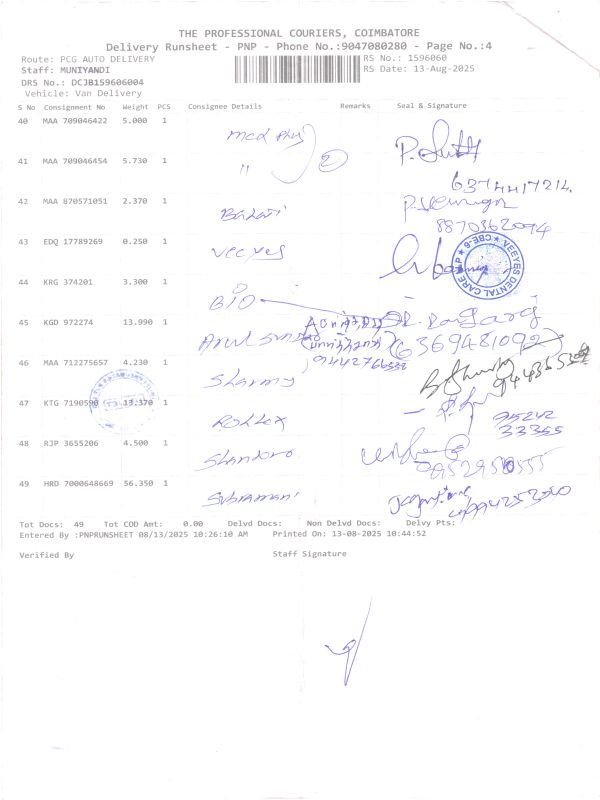 THE PROFESSIONAL COURIERS, COIMBATORE
Delivery Runsheet - PNP - Phone No.:9047080280 - Page No.:4
Route: PCG AUTO DELIVERY RS No.: 1596060
Staff: MUNIYANDI RS Date: 13-Aug-2025
DRS No.: DCJB159606004
Vehicle: Van Delivery
S No Consignment No Weight PCS Consignee Details Remarks Seal & Signature
40 MAA 709046422 5.000 1 med phy
41 MAA 709046454 5.730 1 " 2
6374417214
42 MAA 870571051 2.370 1 Balaji
8870362094
43 EDQ 17789269 0.250 1 Veeyes
VEEYES DENTAL CARE P CBE-9
44 KRG 374201 3.300 1 BIO
45 KGD 972274 13.990 1 Arul (6369481092)
46 MAA 712275657 4.230 1 Sharmy
47 KTG 7190590 13.370 1 Rollex 95242
33355
48 RJP 3655206 4.500 1
49 HRD 7000648669 56.350 1 Subramani
Tot Docs: 49 Tot COD Amt: 0.00 Delvd Docs: Non Delvd Docs: Delvy Pts:
Entered By :PNPRUNSHEET 08/13/2025 10:26:10 AM Printed On: 13-08-2025 10:44:52
Verified By Staff Signature